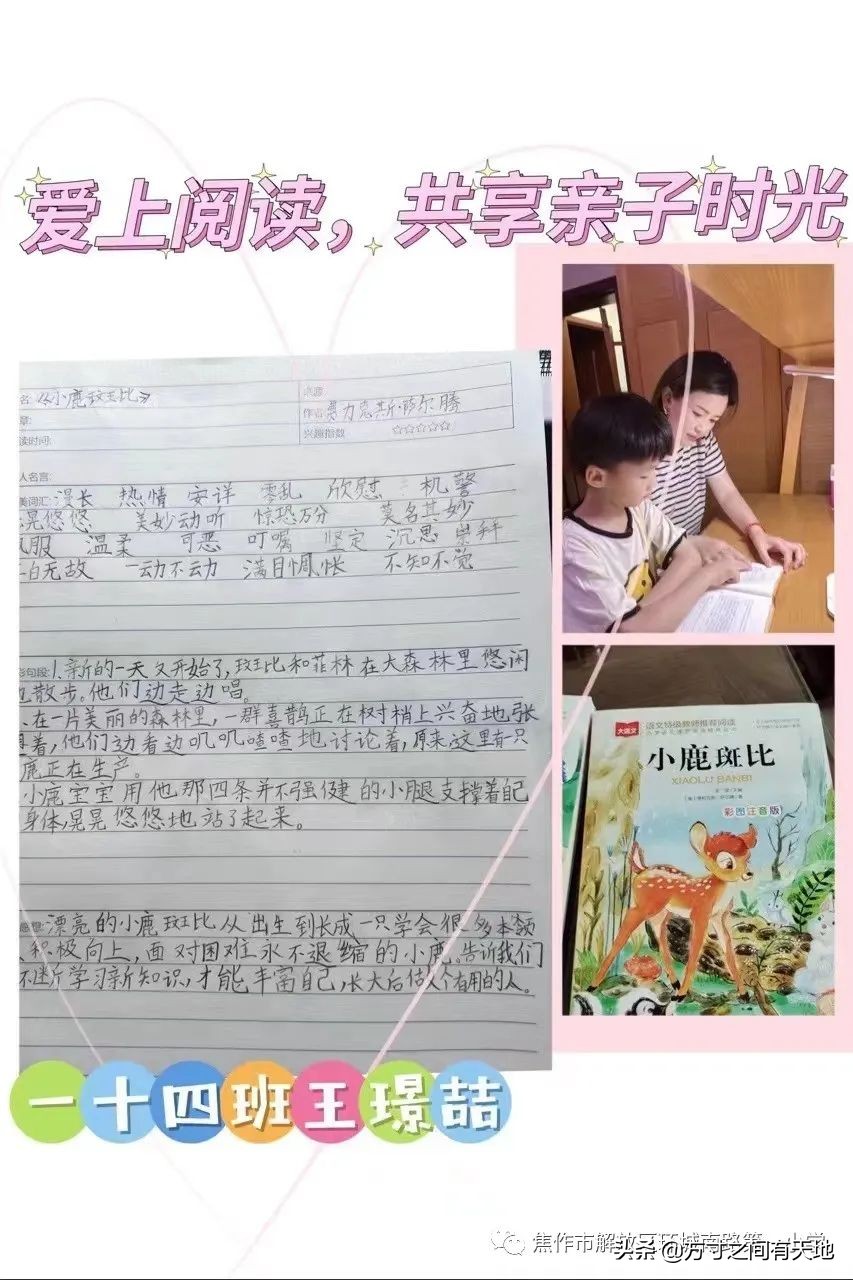 爱上阅读，共享亲子时光
名：《小鹿斑比》
作者 费力克斯·萨尔腾
读时间：
兴趣指数 ☆☆☆☆☆
人名言：
美词汇：漫长 热情 安详 零乱 欣慰 机警
晃悠悠 美妙动听 惊恐万分 莫名其妙
服 温柔 可恶 叮嘱 坚定 沉思 崇拜
白无故 一动不动 满目惆怅 不知不觉
句段：1.新的一天又开始了，斑比和菲林在大森林里悠闲
散步。他们边走边唱。
、在一片美丽的森林里，一群喜鹊正在树梢上兴奋地张
着，他们边看边叽叽喳喳地讨论着，原来这里有一只
鹿正在生产。
小鹿宝宝用他那四条并不强健的小腿支撑着自己
身体，晃晃悠悠地站了起来。
感想：漂亮的小鹿斑比从出生到长成一只学会很多本领
、积极向上，面对困难永不退缩的小鹿。告诉我们
不断学习新知识，才能丰富自己，长大后做个有用的人。
大语文
语文特级教师推荐阅读
小鹿斑比
XIAOLU BANBI
彩图注音版
一十四班王璟喆
焦作市解放区环城南路第一小学
头条 @方寸之间有天地